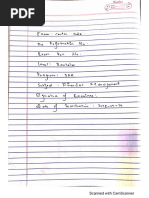 Exam centre code
T.U. Registration No:
Exam Roll No:
Level: Bachelor
Program: BBA
Subject: Financial Management
Signature of Examinee:
Scanned with CamScanner